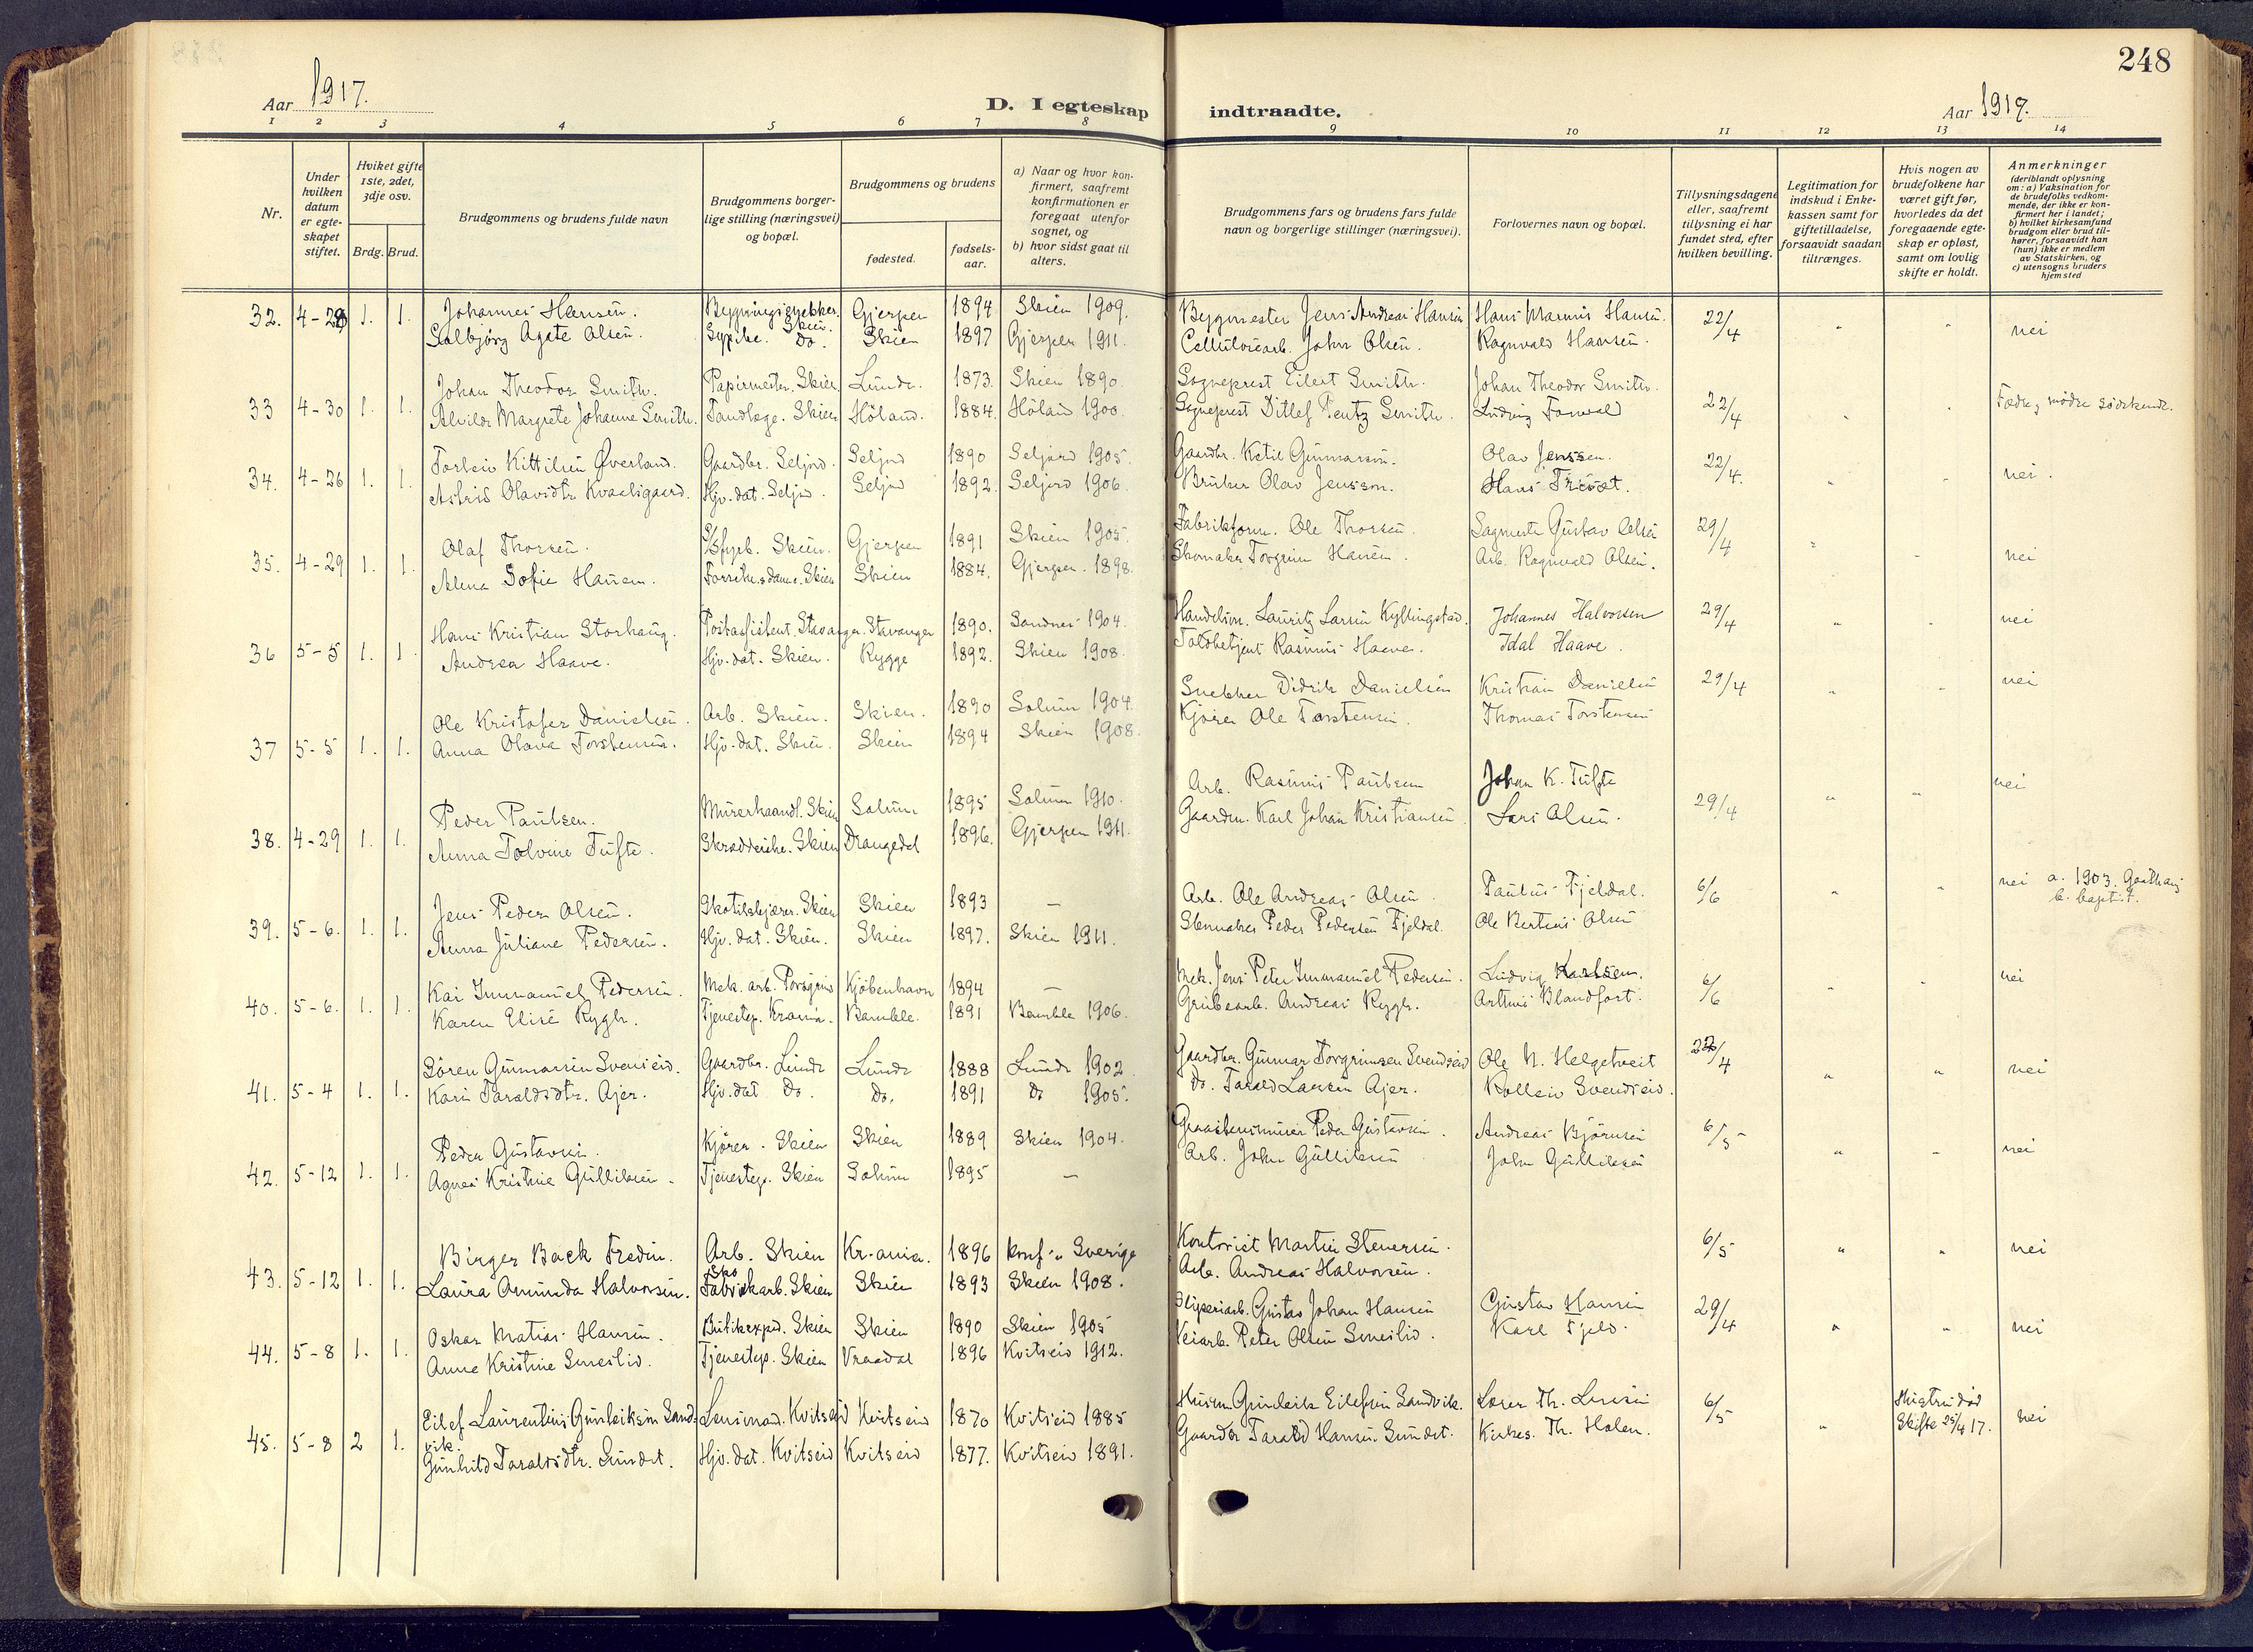 248
Aar 1917.
D. I egteskap indtraadte.
Aar 1917.
1 2 3 4 5 6 7 8 9 10 11 12 13 14
Nr.
Under hvilken datum er egte-skapet stiftet.
Hviket gifte 1ste, 2det, 3dje osv.
Brdg. Brud.
Brudgommens og brudens fulde navn
Brudgommens borger-lige stilling (næringsvei) og bopæl.
Brudgommens og brudens
fødested.
fødsels-aar.
a) Naar og hvor kon-firmert, saafremt konfirmationen er foregaat utenfor sognet, og
b) hvor sidst gaat til alters.
Brudgommens fars og brudens fars fulde navn og borgerlige stillinger (næringsvei).
Forlovernes navn og bopæl.
Tillysningsdagene eller, saafremt tillysning ei har fundet sted, efter hvilken bevilling.
Legitimation for indskud i Enke-kassen samt for giftetilladelse, forsaavidt saadan tiltrænges.
Hvis nogen av brudefolkene har været gift før, hvorledes da det foregaaende egte-skap er opløst, samt om lovlig skifte er holdt.
Anmerkninger (deriblandt oplysning om: a) Vaksination for de brudefolks vedkom-mende, der ikke er kon-firmert her i landet; b) hvilket kirkesamfund brudgom eller brud til-hører, forsaavidt han (hun) ikke er medlem av Statskirken, og c) utensogns bruders hjemsted
32. 1. 1. Johannes Hansen. Bygningssnekker Skien. Gjerpen 1894 Skien 1909. Bygmester Jens Andreas Hansen Hans Marinus Hansen. 22/4 " " nei
Salbjørg Agate Olsen. Sypike. Do. Skien 1897 Gjerpen 1911. Cellulosearb. John Olsen. Ragnvald Hansen.
33 4-30 1. 1. Johan Theodor Smith. Papirmester. Skien Lunde. 1873. Skien 1890. Sogneprest Eilert Smith. Johan Theodor Smith. 22/4 " Fædre, mødre sødskende.
Alvilde Margrete Johanne Smith. Tandlæge. Skien Höland. 1884. Höland 1900. Sogneprest Ditlef Smith. Ludvig
34. 4-26 1. 1. Torleiv Kittilsen Øverland. Gaardbr. Seljord. Seljord 1890 Seljord 1905. Gaardbr. Ketil Gunnarson. Olav Jenssen. 22/4. " " nei.
Astrid Olavsdtr. Kvaaligaard. Hjv. dat. Seljord. Seljord 1892 Seljord 1906. Bruker Olav Jensson. Hans
35. 4-29 1. 1. Olaf Thorsen. Skien. Gjerpen 1891 Skien 1905. Fabrikform. Ole Thorsen. Sagmester Gustav Olsen 29/4 " " nei
Alma Sofie Hansen. Skien Skien 1884. Gjerpen 1898. Skomaker Torgrim Hansen. Arb. Ragnvald Olsen.
36 5-5 1. 1 Hans Kristian Storhaug. Postassistent. Stavanger. Stavanger 1890. Sandnes 1904. Handelsm. Lauritz Larsen Kyllingstad. Johannes Halvorsen 29/4 " " nei
Andrea Haave. Hjv. dat. Skien. Rygge 1892. Skien 1908. Toldbetjent Rasmus Haave. Idal Haave.
37 5-5 1. 1. Ole Kristofer Danielsen. Arb. Skien. Skien. 1890 Solum 1904. Snekker Didrik Danielsen Kristian Danielsen 29/4 " " nei
Anna Olava Torstensen. Hjv. dat. Skien. Skien 1894 Skien 1908. Kjører Ole Torstensen. Thomas Torstensen
38. 4-29 1. 1. Peder Paulsen. Murerhaandl. Skien Solum 1895 Solum 1910. Arb. Rasmus Paulsen Johan K. Tufte 29/4 " " nei
Anna Tolvine Tufte. Skrædderske. Skien Drangedal 1896. Gjerpen 1911. Gaardm. Karl Johan Kristiansen. Lars Olsen.
39. 5-6. 1. 1. Jens Peder Olsen. Skien Skien 1893 — Arb. Ole Andreas Olsen Paulus Fjeldal. 6/6 " " nei a. 1903. b. baptist.
Anna Juliane Pedersen. Hjv. dat. Skien. Skien 1897. Skien 1911. Peder Pedersen Fjeldal. Ole Bertius Olsen
40. 5-6. 1. 1. Kai Immanuel Pedersen. Mek. arb. Porsgrund Kjöbenhavn 1894 — Mek. Jens Peter Immanuel Pedersen. Ludvig Karlsen. 6/6 " " nei
Karen Elise Rygh. Tjenestep. Krania. Bamble. 1891 Bamble 1906. Grubearb. Andreas Rygh. Arthur Blandfort.
41. 5-4 1. 1. Søren Gunnarsen Svenseid. Gaardbr. Lunde Lunde 1888 Lunde 1902. Gaardbr. Gunnar Torgrimsen Svendseid Ole N. Helgetveit 22/4 " " nei
Kari Taraldsdtr. Ajer. Hjv. dat Do. Do. 1891 Do 1905. Do. Tarald Larsen Ajer. Rolleiv Svendseid.
42. 5-12 1. 1. Peder Gustavsen. Kjører. Skien Skien 1889 Skien 1904. Peder Gustavsen. Andreas Björnsen 6/5 " " nei
Agnes Kristine Gulliksen. Tjenestep. Skien Solum 1895 — Arb. John Gulliksen John Gulliksen
43. 5-12 1. 1. Birger Back Fredin. Arb. Skien Kr-ania. 1896 konf. i Sverige Kontorist Martin Stenersen. 6/5 " " nei
Laura Amunda Halvorsen. Sko Fabrikarb. Skien Skien 1893 Skien 1908. Arb. Andreas Halvorsen.
44. 5-8 1. 1. Oskar Matias Hansen. Butikexped. Skien Skien 1890 Skien 1905 Sliperiarb. Gustav Johan Hansen Gustav Hansen 29/4 " " nei
Anne Kristine Smeslid. Tjenestep. Skien Vraadal 1896 Kvitseid 1912. Veiarb. Peter Olsen Smeslid. Karl Fjeld.
45. 5-8 2 1. Eilef Laurentius Gunleiksen Sandvik. Lensmand. Kvitseid Kvitseid 1870 Kvitseid 1885 Husm. Gunleik Eilefsen Sandvik. Lærer Th. Larsen 6/5 " Hustru død Skifte 25/4 17. nei
Gunhild Taraldsdtr. Sundet. Hjv. dat. Kvitseid Kvitseid 1877. Kvitseid 1891. Gaardbr Tarald Hansen Sundet. Kirkes. Th. Holen.